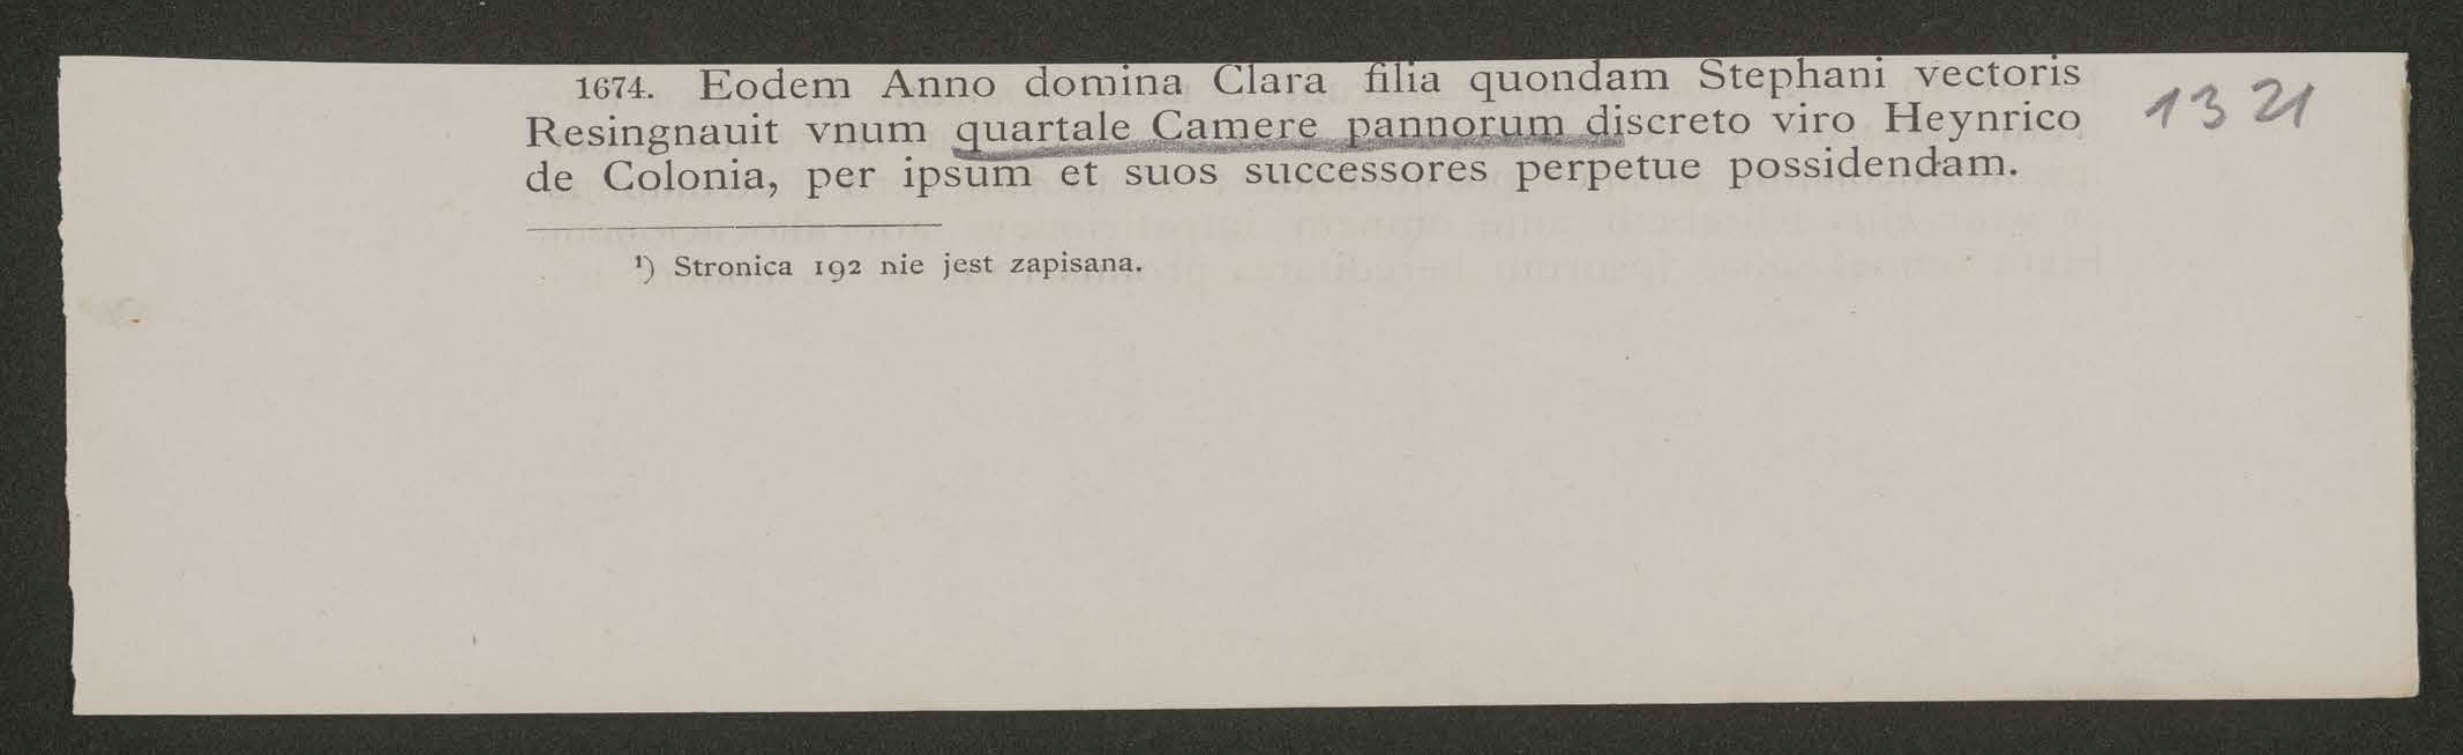 1674. Eodem Anno domina Clara filia quondam Stephani vectoris
Resingnauit vnum quartale Camere pannorum discreto viro Heynrico
de Colonia, per ipsum et suos successores perpetue possidendam.
1321
¹) Stronica 192 nie jest zapisana.